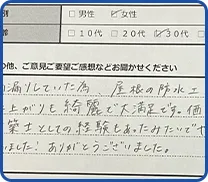 □男性 ☑女性
□10代 □20代 ☑30代
の他、ご意見ご要望ご感想などお聞かせください
漏りしていた為、屋根の防水工
上がりも綺麗で大満足です。価
築士としての経験もあったみたいです
ました! ありがとうございました。